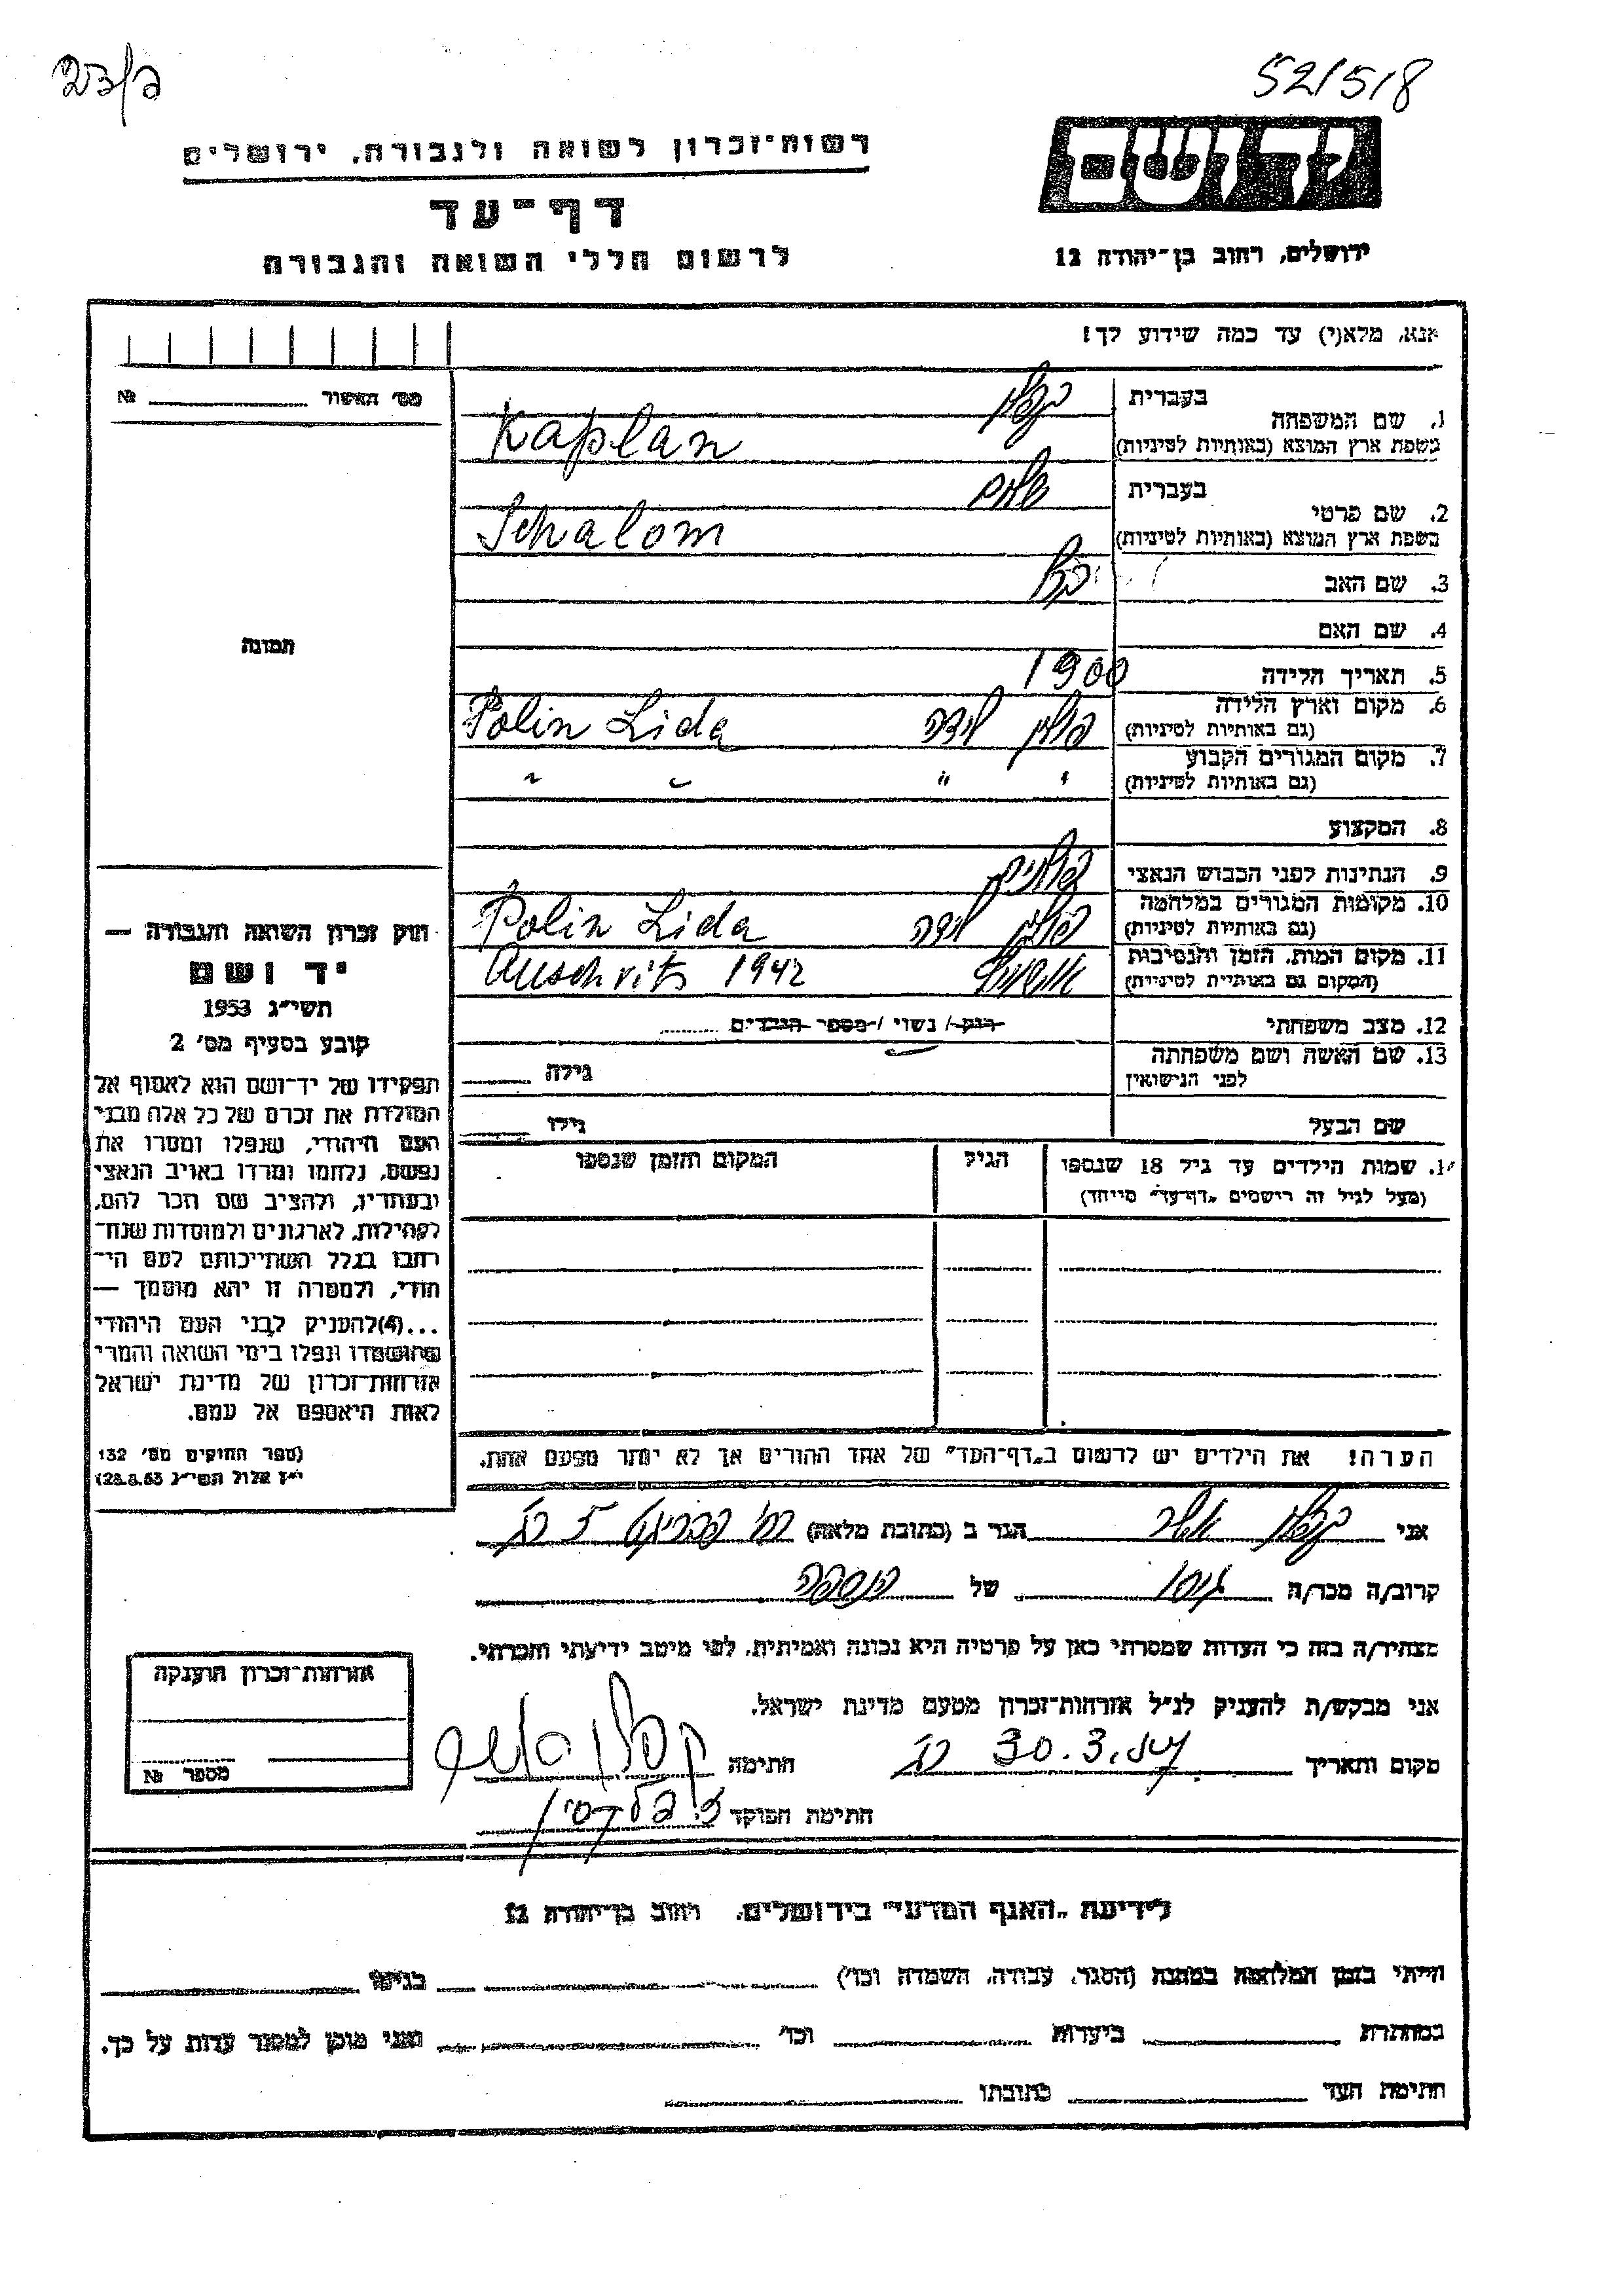 52/5/8
רשות-זכרון לשואה ולגבורה, ירושלים
יד ושם
דף-עד
ירושלים, רחוב בן-יהודה 12
לרשום חללי השואה והגבורה
אנא, מלא(י) עד כמה שידוע לך!
מס' האשור № 
1. שם המשפחה בעברית קפלן
בשפת ארץ המוצא (באותיות לטיניות) Kaplan
2. שם פרטי בעברית שלום
בשפת ארץ המוצא (באותיות לטיניות) Schalom
3. שם האב
4. שם האם
תמונה
5. תאריך הלידה 1900
6. מקום וארץ הלידה (גם באותיות לטיניות) פולין לידה Polin Lida
7. מקום המגורים הקבוע (גם באותיות לטיניות) " " " "
8. המקצוע
9. הנתינות לפני הכבוש הנאצי פולנית
10. מקומות המגורים במלחמה (גם באותיות לטיניות) פולין לידה Polin Lida
11. מקום המות, הזמן והנסיבות (המקום גם באותיות לטיניות) אושוויץ Auschvits 1942
12. מצב משפחתי רווק / נשוי / מספר הילדים
13. שם האשה ושם משפחתה לפני הנישואין גילה
שם הבעל גילו
חוק זכרון השואה והגבורה —
יד ושם
תשי"ג 1953
קובע בסעיף מס' 2
תפקידו של יד-ושם הוא לאסוף אל
המולדת את זכרם של כל אלה מבני
העם היהודי, שנפלו ומסרו את
נפשם, נלחמו ומרדו באויב הנאצי
ובעוזריו, ולהציב שם וזכר להם,
לקהילות, לארגונים ולמוסדות שנח-
רבו בגלל השתייכותם לעם הי-
הודי, ולמטרה זו יהא מוסמך —
...(4) להעניק לבני העם היהודי
שהושמדו ונפלו בימי השואה והמרי
אזרחות-זכרון של מדינת ישראל
לאות היאספם אל עמם.
(ספר החוקים מס' 132
י"ז אלול תשי"ג 28.8.53)
14. שמות הילדים עד גיל 18 שנספו הגיל המקום והזמן שנספו
(מעל לגיל זה רושמים "דף-עד" מיוחד)
הערה! את הילדים יש לרשום ב"דף-העד" של אחד ההורים אך לא יותר מפעם אחת.
אני קפלן אשר הגר ב (כתובת מלאה)
קרוב/ה מכר/ה של הנספה
מצהיר/ה בזה כי העדות שמסרתי כאן על פרטיה היא נכונה ואמיתית, לפי מיטב ידיעתי והכרתי.
אני מבקש/ת להעניק לנ"ל אזרחות-זכרון מטעם מדינת ישראל.
מקום ותאריך 30.3. חתימה קפלן אשר
חתימת הפוקד
אזרחות-זכרון הוענקה
מספר №
לידיעת "האגף המדעי" בירושלים, רחוב בן-יהודה 12
הייתי בזמן המלחמה במחנה (הסגר, עבודה, השמדה וכו') בגיטו
במחתרת ביערות וכו' ואני מוכן למסור עדות על כך.
חתימת העד כתובתו